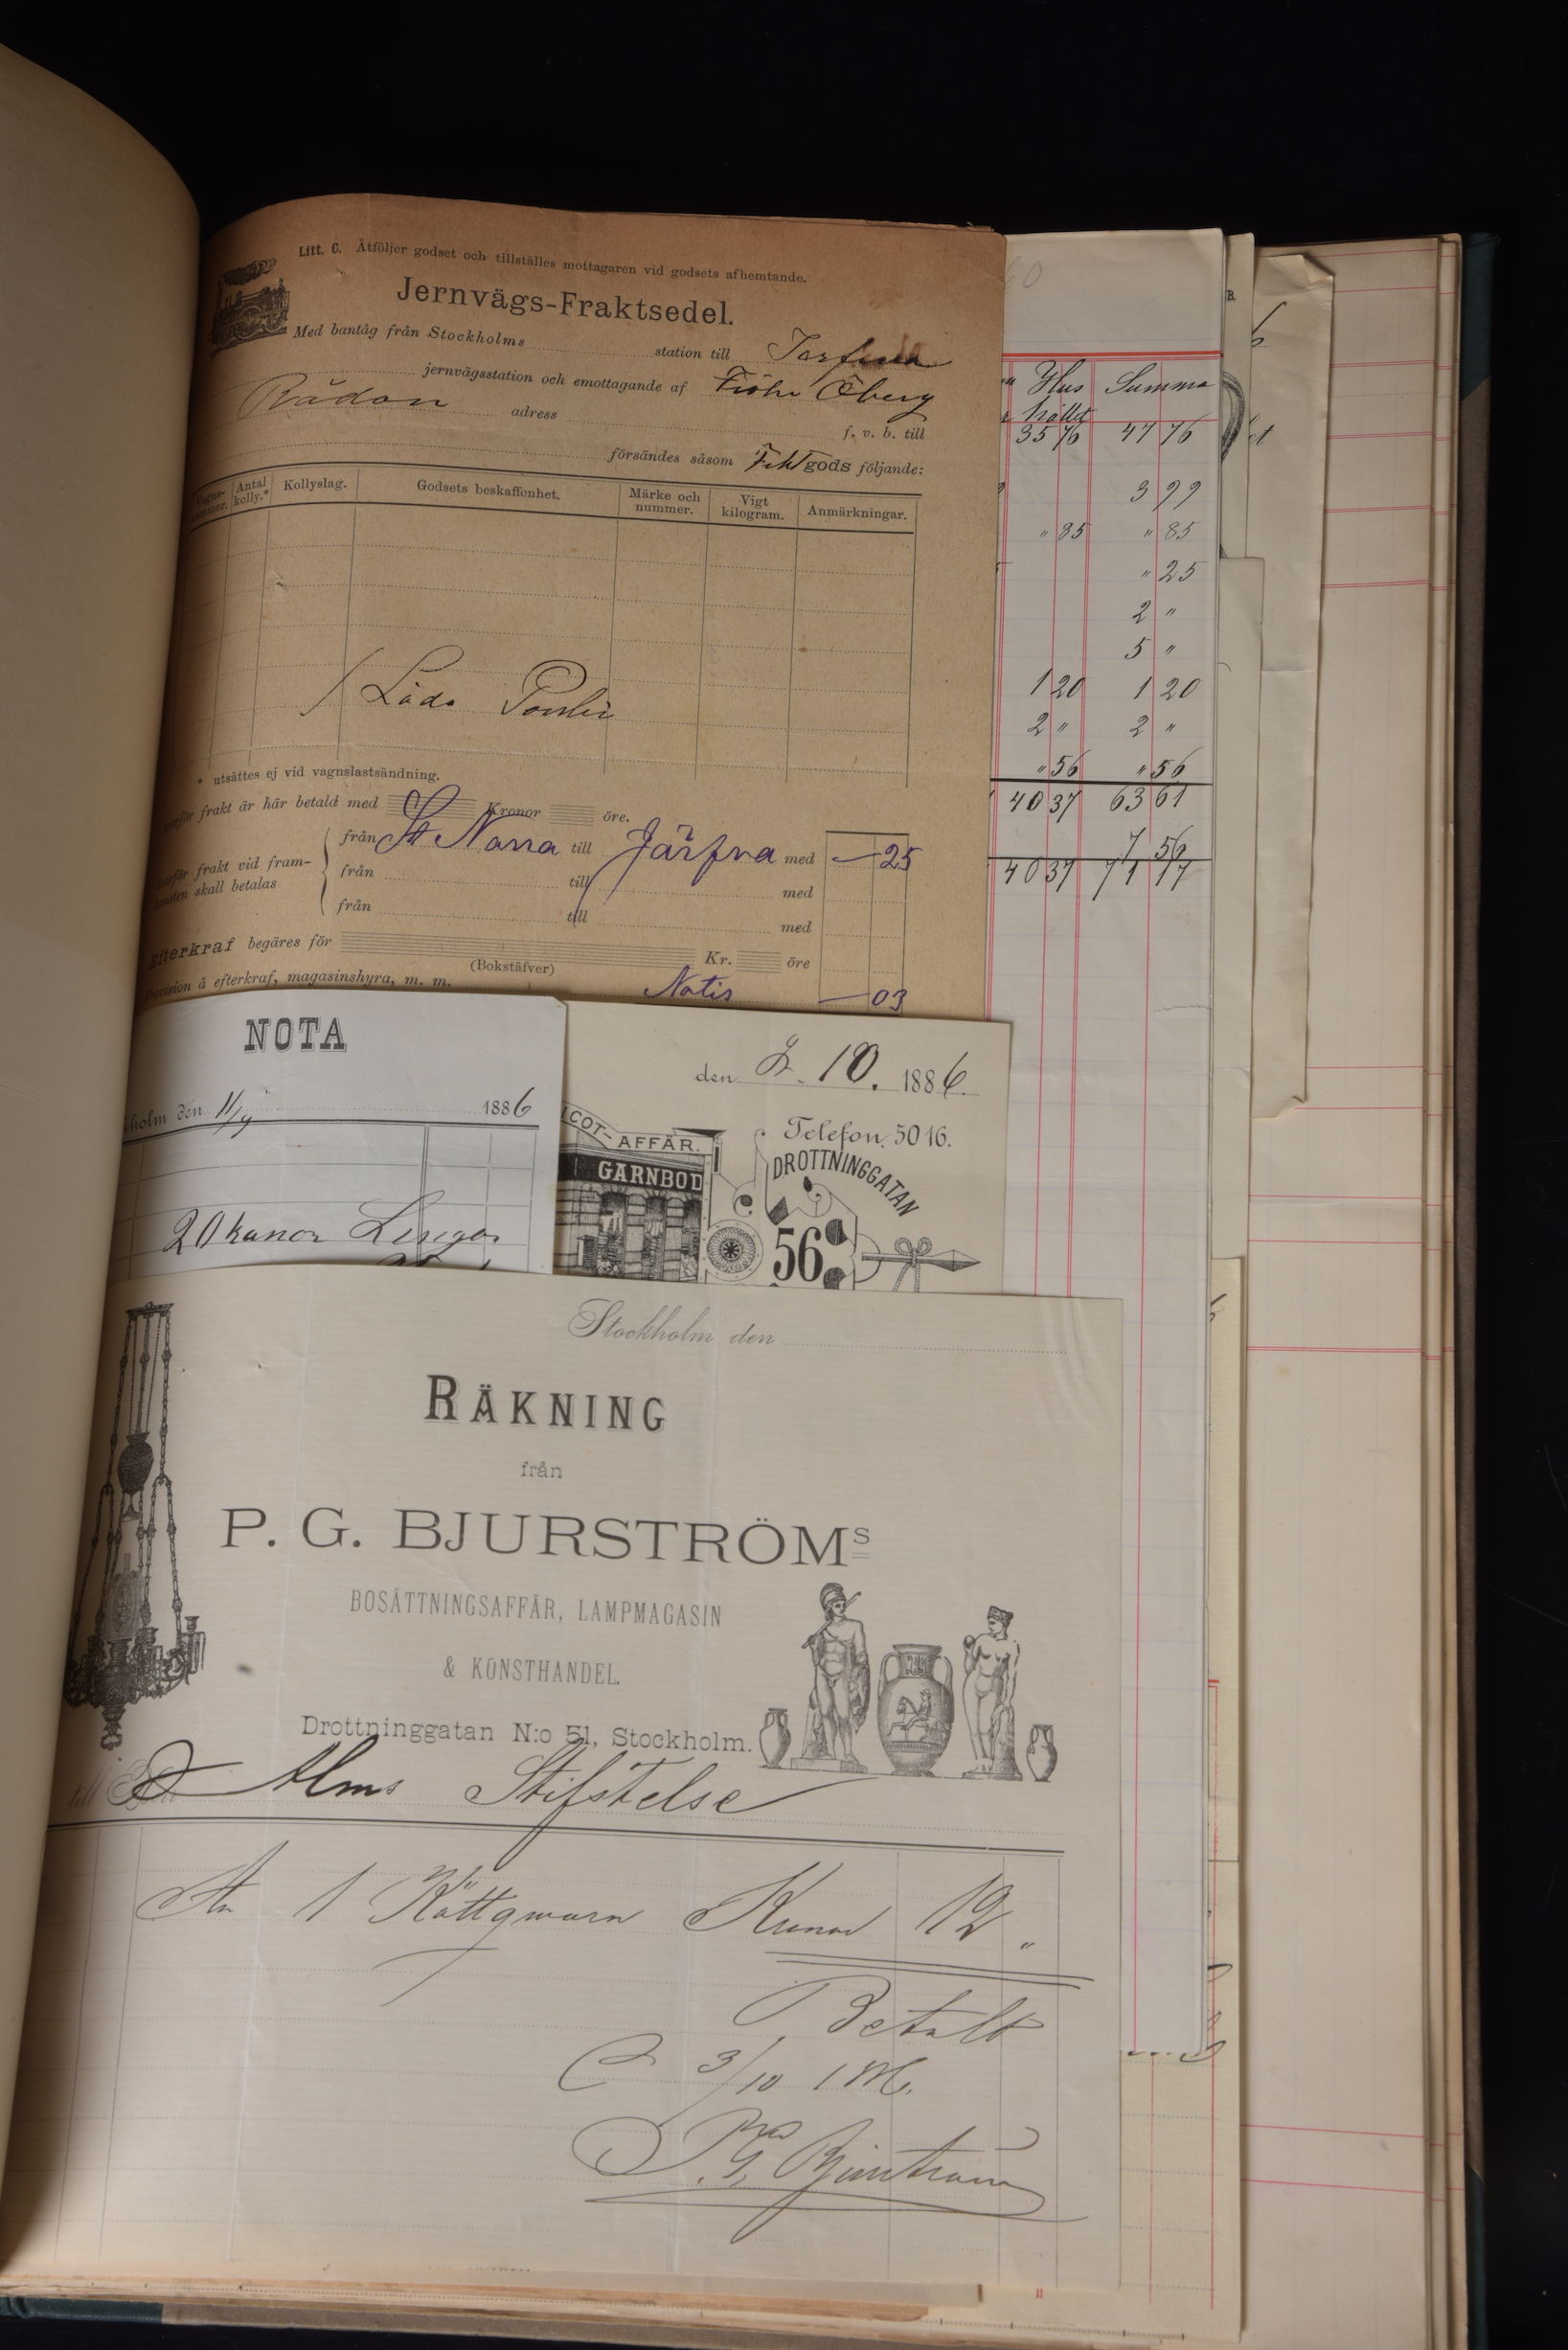 Litt. C. Åtföljer godset och tillställes mottagaren vid godsets afhemtande.
Jernvägs-Fraktsedel.
Med bantåg från Stockholms station till
jernvägsstation och emottagande af Öberg
adress
f. v. b. till
försändes såsom gods följande:
Antal kolly.* Kollyslag. Godsets beskaffenhet. Märke och nummer. Vigt kilogram. Anmärkningar.
1 Låda
* utsättes ej vid vagnslastsändning.
frakt är här betald med Kronor öre.
från St Norra till Järfva med — 25
frakt vid fram-
skall betalas
från till med
från till med
Efterkraf begäres för Kr. öre
(Bokstäfver)
å efterkraf, magasinshyra, m. m. Notis — 03
Hus Summa
hållet
35 76 47 76
3 99
" 85 " 85
" 25
2 "
5 "
1 20 1 20
2 " 2 "
" 56 " 56
40 37 63 61
7 56
40 37 71 17
NOTA
holm den 11/9 1886
20 kanor Lingon
den 2. 10. 1886.
COT-AFFÄR.
GARNBOD
Telefon. 50 16.
DROTTNINGGATAN
56
Stockholm den
RÄKNING
från
P. G. BJURSTRÖMS
BOSÄTTNINGSAFFÄR, LAMPMAGASIN
& KONSTHANDEL.
Drottninggatan N:o 51, Stockholm.
till Alms Stiftelse
1 Köttqwarn Kronor 12 "
Betalt
3/10
P. G. Bjurström